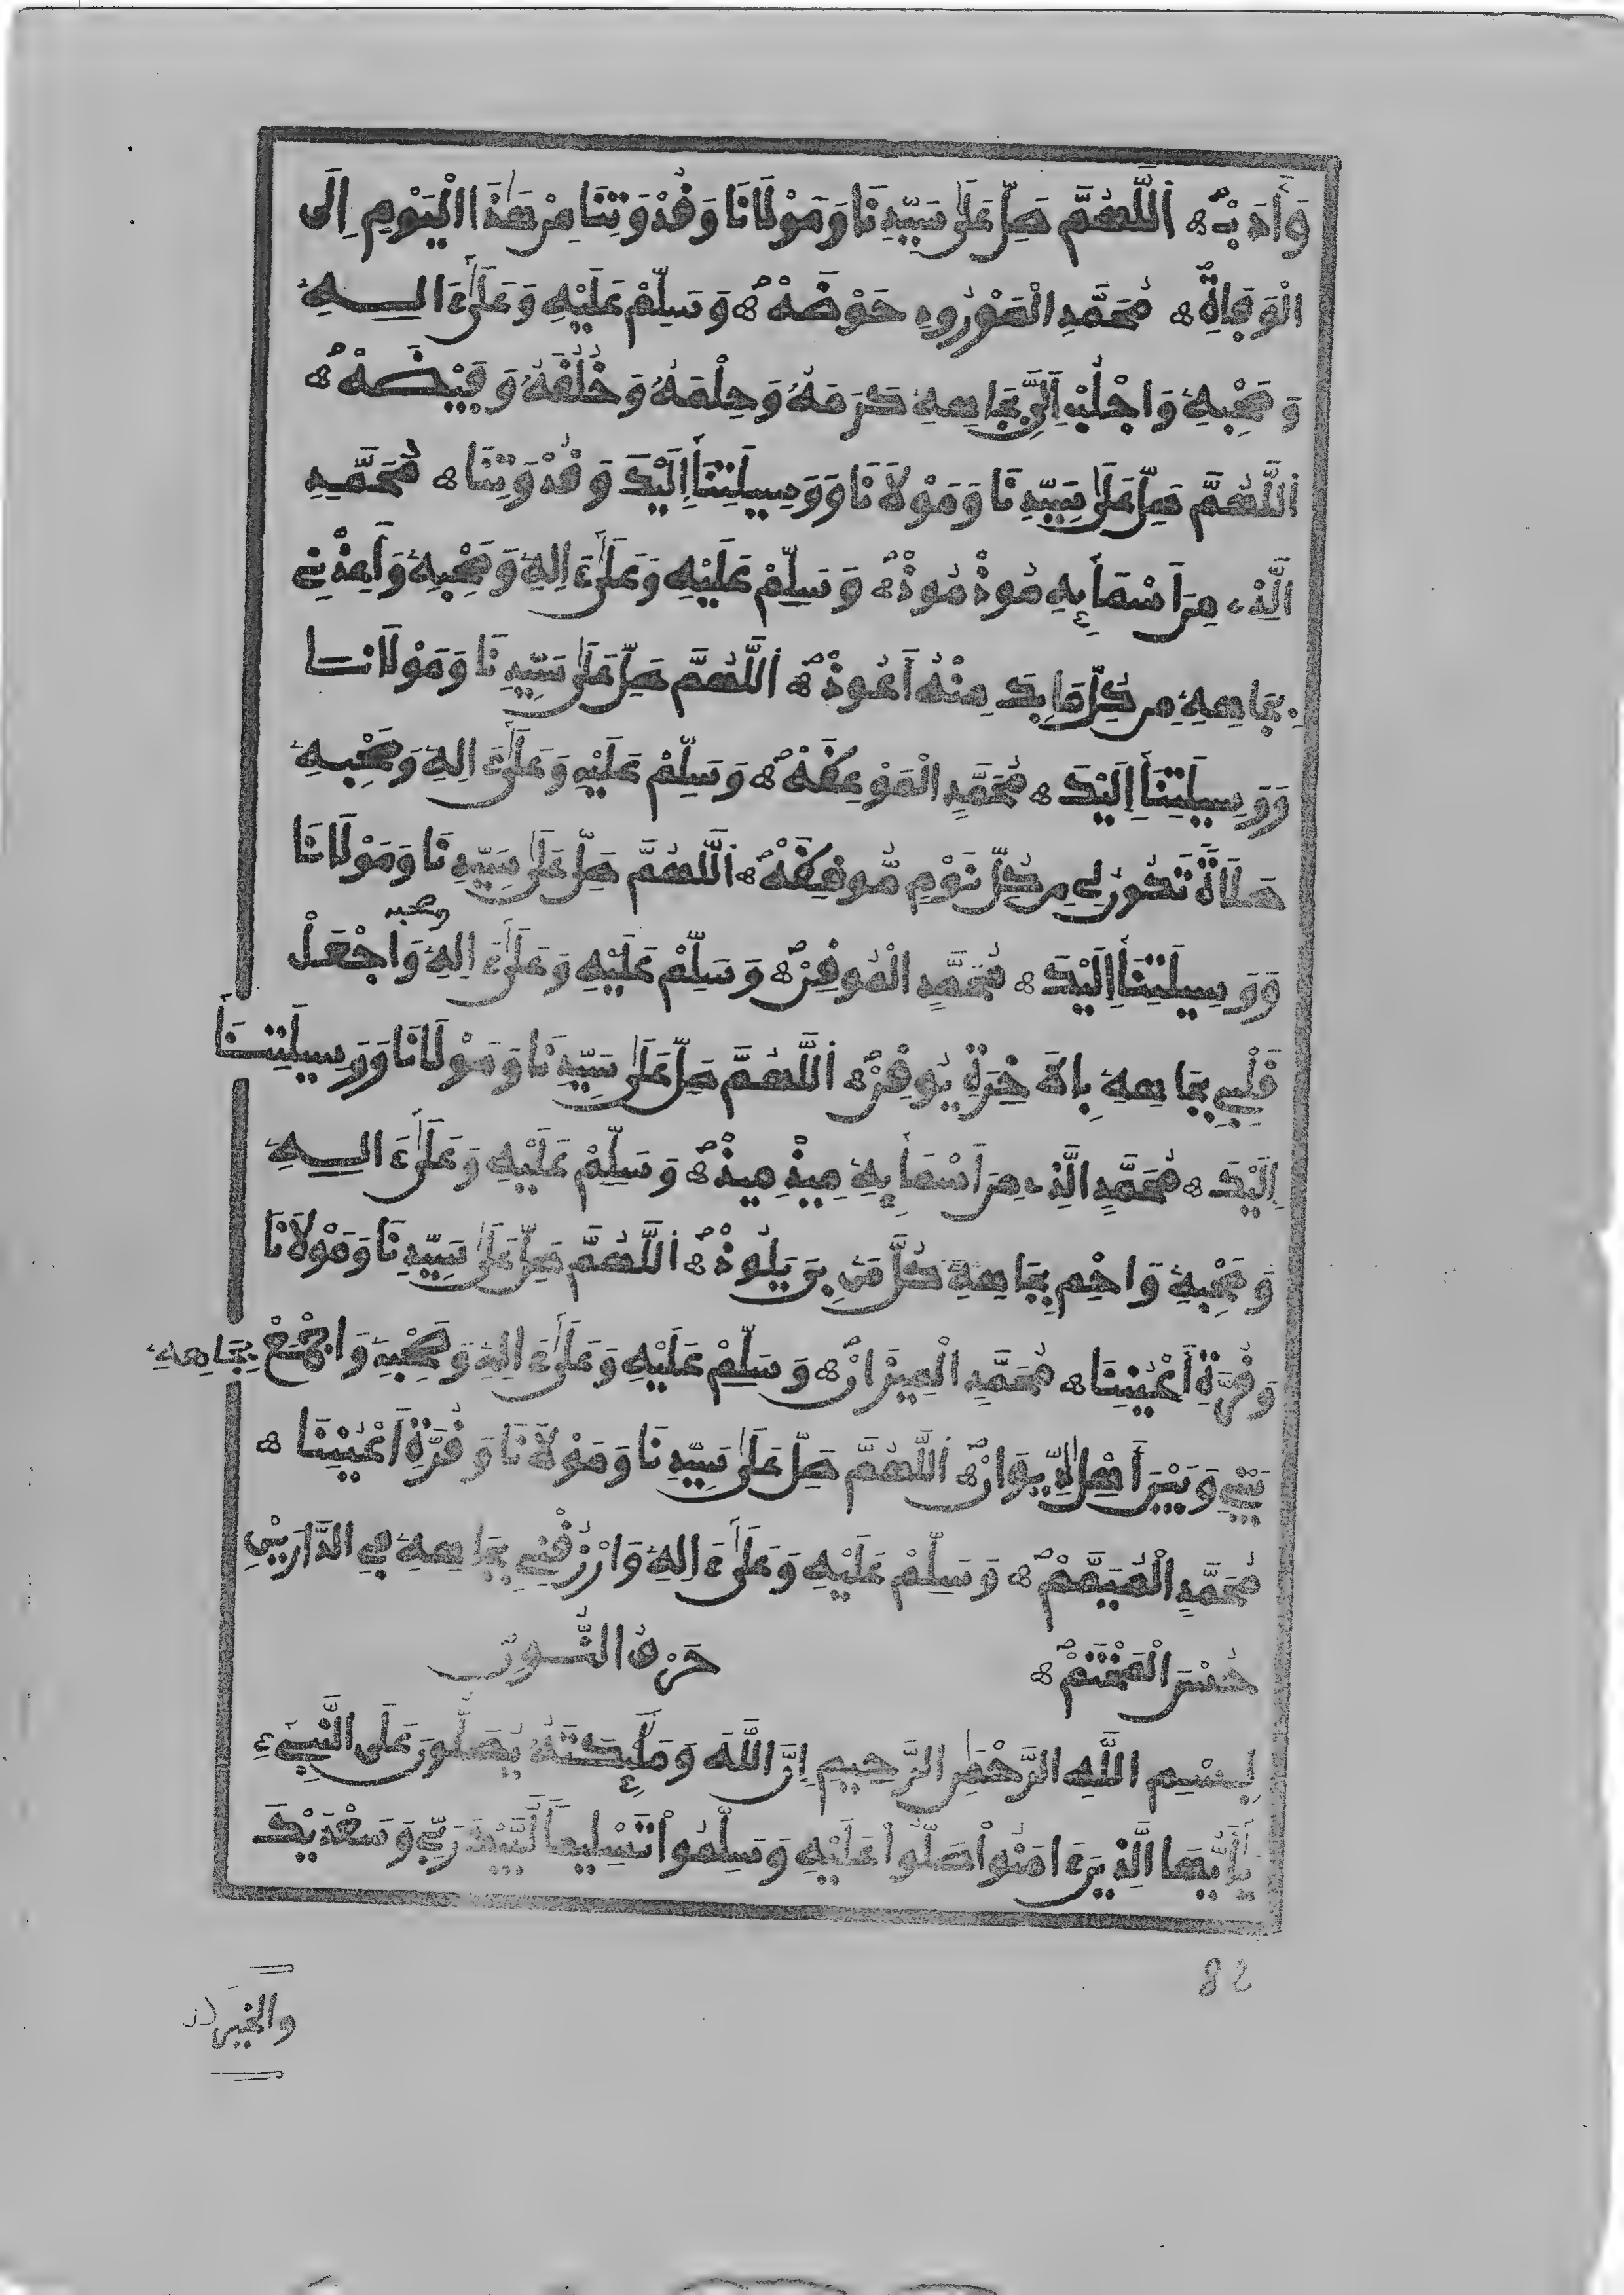 وَأَدَبْ اَللَّهُمَّ صَلِّ عَلَى سَيِّدِنَا وَمَوْلَانَا وَقُدْوَتِنَا مِنْ هَذَا الْيَوْمِ إِلَى
الْوَفَاةِ مُحَمَّدِ الْمَوْرُودِ حَوْضُهْ وَسَلِّمْ عَلَيْهِ وَعَلَىٰ ءَالِهِ
وَصَحْبِهِ وَاجْلُبْ إِلَيَّ بِجَاهِهِ كَرَمَهُ وَحِلْمَهُ وَخُلُقَهُ وَفَيْضَهْ
اَللَّهُمَّ صَلِّ عَلَى سَيِّدِنَا وَمَوْلَانَا وَوَسِيلَتِنَا إِلَيْكَ وَقُدْوَتِنَا مُحَمَّدِ
الَّذِي مِنَ اَسْمَائِهِ مُوذْ مُوذْ وَسَلِّمْ عَلَيْهِ وَعَلَىٰ ءَالِهِ وَصَحْبِهِ وَأَعِذْنِي
بِجَاهِهِ مِن كُلِّ مَا بِكَ مِنْهُ أَعُوذْ اَللَّهُمَّ صَلِّ عَلَى سَيِّدِنَا وَمَوْلَانَا
وَوَسِيلَتِنَا إِلَيْكَ مُحَمَّدِ الْمَوْعِظَهْ وَسَلِّمْ عَلَيْهِ وَعَلَىٰ ءَالِهِ وَصَحْبِهِ
صَلَاةً تَكُونُ لِي مِن كُلِّ نَوْمٍ مُّوقِظَهْ اَللَّهُمَّ صَلِّ عَلَى سَيِّدِنَا وَمَوْلَانَا
وَوَسِيلَتِنَا إِلَيْكَ مُحَمَّدِ الْمُوقِنْ وَسَلِّمْ عَلَيْهِ وَعَلَىٰ ءَالِهِ وصحبه وَاجْعَلْ
قَلْبِي بِجَاهِهِ بِالَاخِرَةِ يُوقِنْ اَللَّهُمَّ صَلِّ عَلَى سَيِّدِنَا وَمَوْلَانَا وَوَسِيلَتِنَا
إِلَيْكَ مُحَمَّدٍ الَّذِي مِنَ اَسْمَائِهِ مِيذْ مِيذْ وَسَلِّمْ عَلَيْهِ وَعَلَىٰ ءَالِهِ
وَصَحْبِهِ وَاحْمِ بِجَاهِهِ كُلَّ مَن بِيَ يَلُوذْ اَللَّهُمَّ صَلِّ عَلَى سَيِّدِنَا وَمَوْلَانَا
وَقُرَّةِ أَعْيُنِنَا مُحَمَّدِ الْمِيزَانْ وَسَلِّمْ عَلَيْهِ وَعَلَىٰ ءَالِهِ وَصَحْبِهِ وَاجْمَعْ بِجَاهِهِ
بَيْنِي وَبَيْنَ أَهْلِ الدِّيوَانْ اَللَّهُمَّ صَلِّ عَلَى سَيِّدِنَا وَمَوْلَانَا وَقُرَّةِ أَعْيُنِنَا
مُحَمَّدِ الْمُيَمَّمْ وَسَلِّمْ عَلَيْهِ وَعَلَىٰ ءَالِهِ وَارْزُقْنِي بِجَاهِهِ فِي الدَّارَيْنِ
حُسْنَ الْمُخْتَتَمْ حَرْفُ النُّونْ
بِسْمِ اللَّهِ الرَّحْمَنِ الرَّحِيمِ إِنَّ اللَّهَ وَمَلَٰئِكَتَهُ يُصَلُّونَ عَلَى النَّبِيءِ
يَٰأَيُّهَا الَّذِينَ ءَامَنُواْ صَلُّواْ عَلَيْهِ وَسَلِّمُواْ تَسْلِيماً لَّبَّيْكَ رَبِّي وَسَعْدَيْكَ
82
والخير